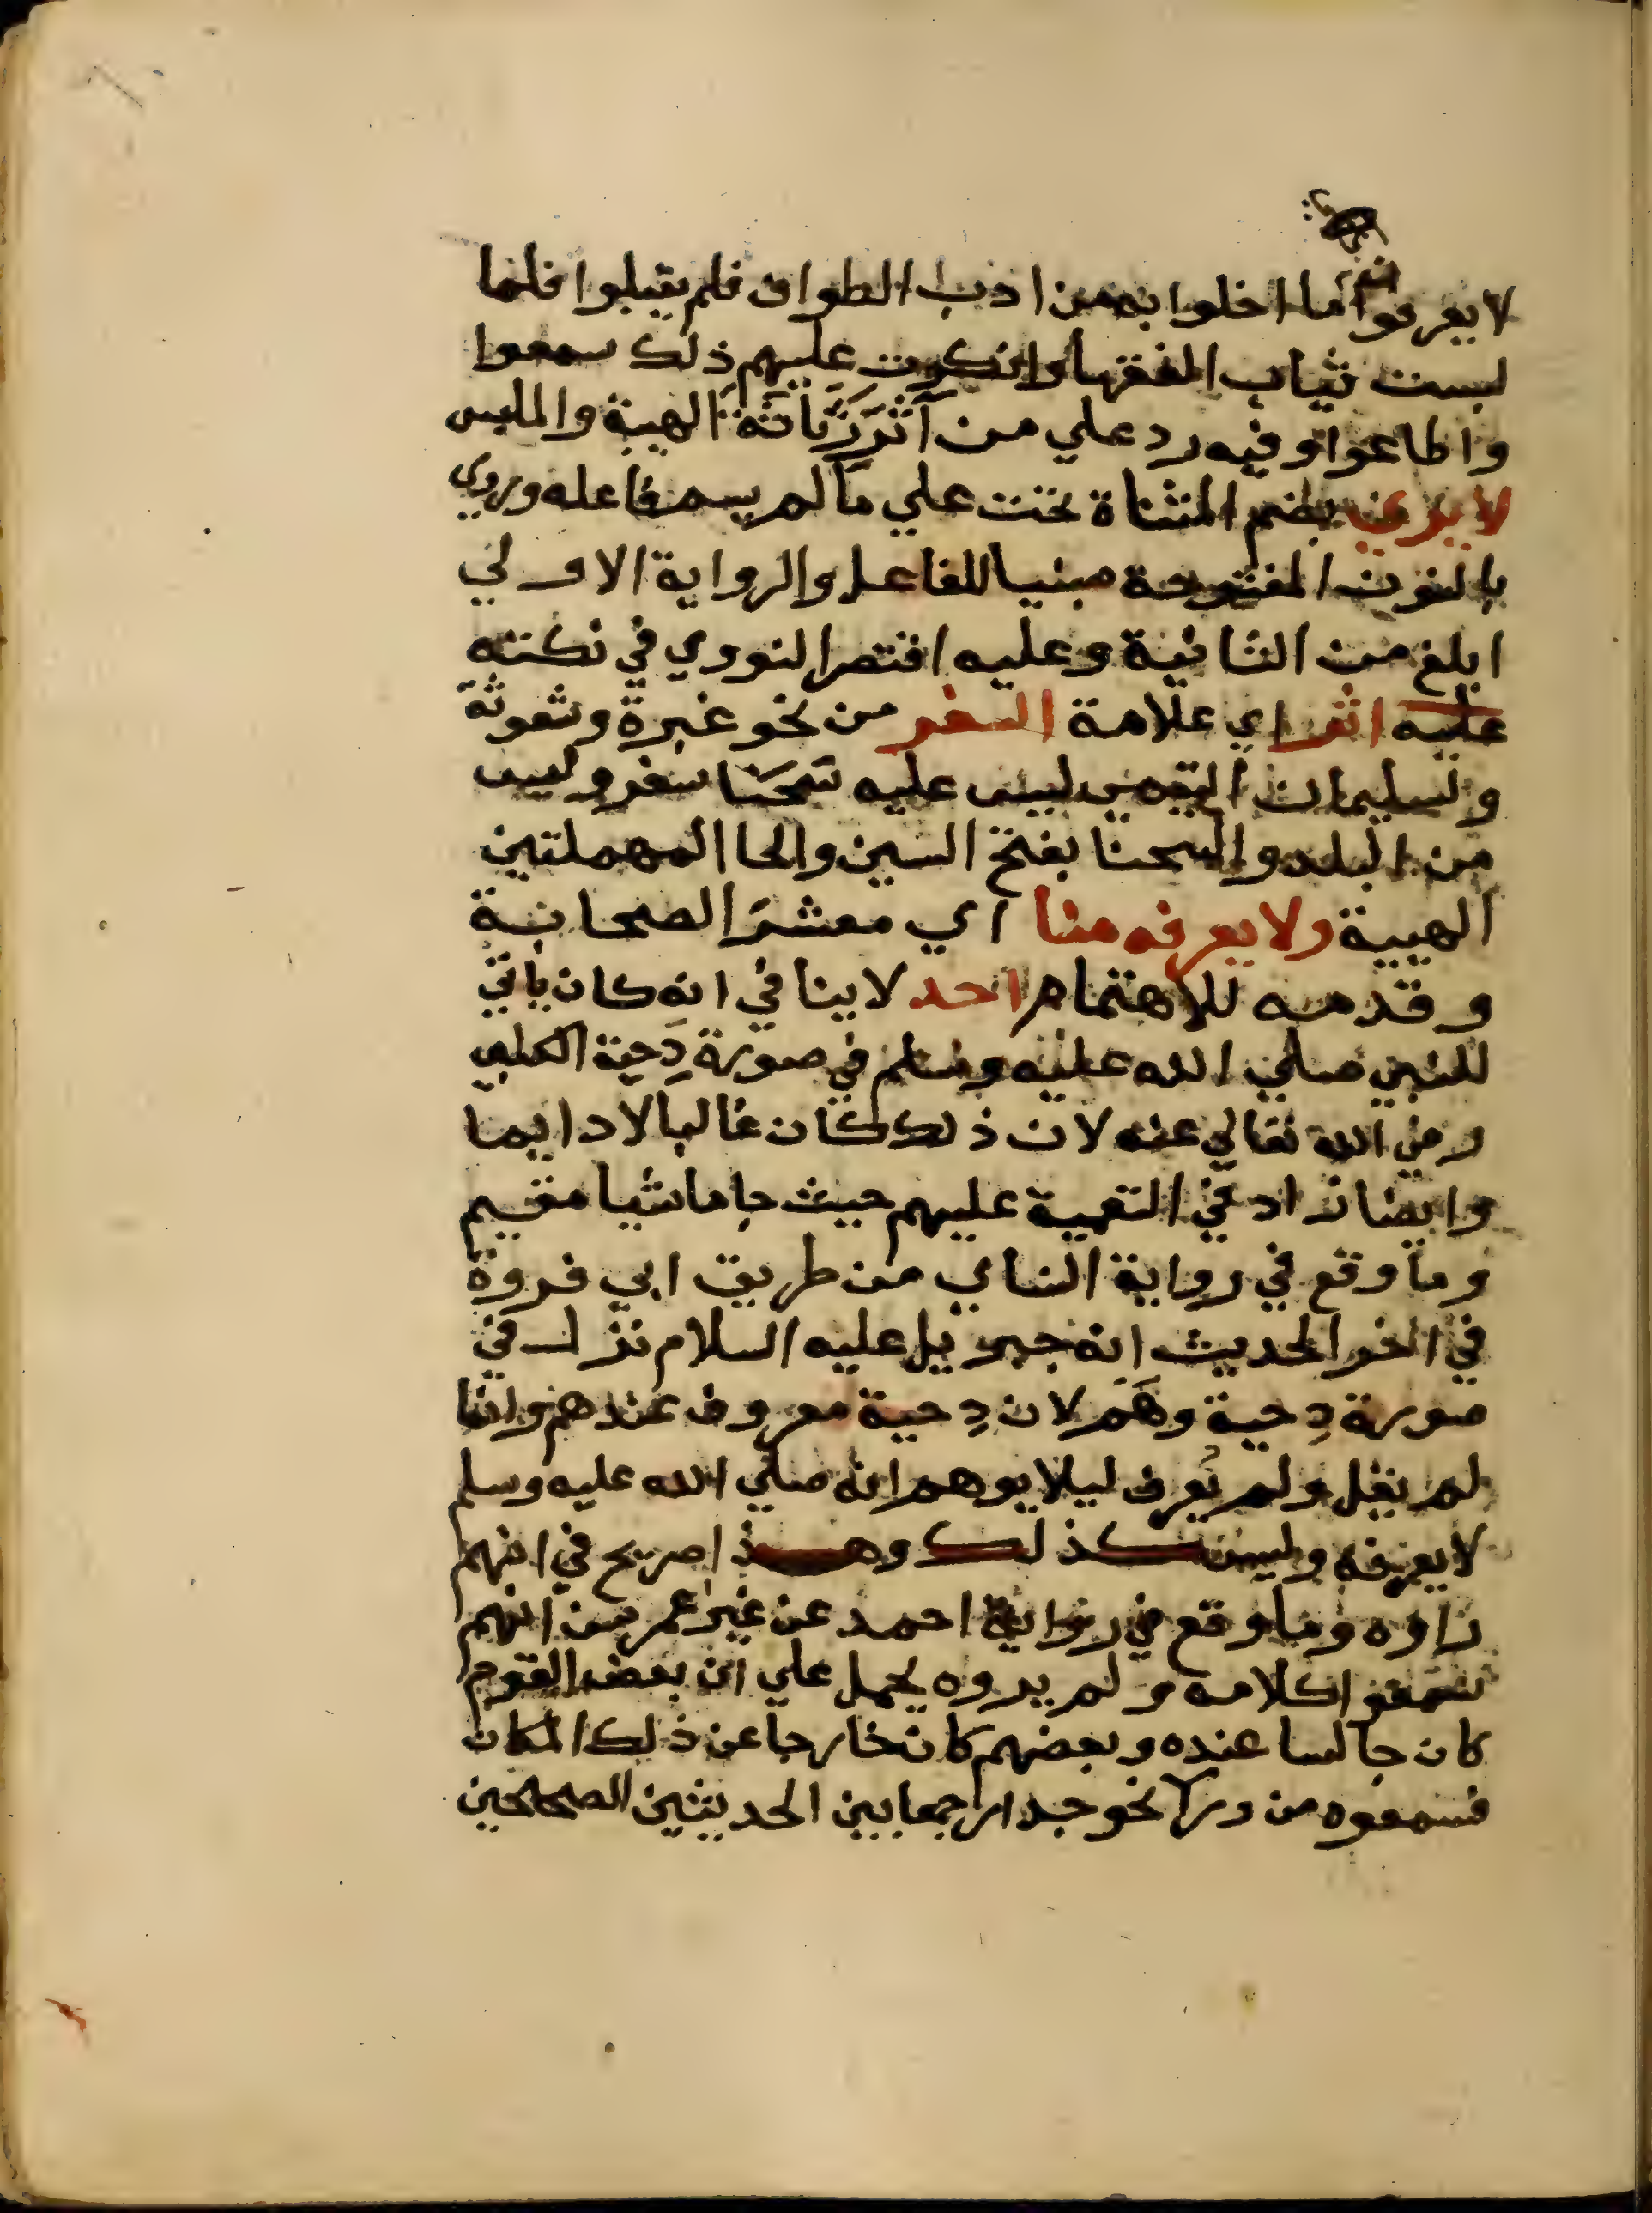 لا يعرفوا ما اخلوا به من اداب الطواف فلم يقبلوا فلما
لبست ثياب الفقها وانكرت عليهم ذلك سمعوا
واطاعوا وفيه رد علي من آثر رثاثة الهيية والملبس
لا يري بضم المثناة تحت علي ما لم يسم فاعله وروي
بالنون المفتوحة مبنيا للفاعل والرواية الاولي
ابلغ من الثانية وعليه اقتصر النووي في نكته
عليه اثر اي علامة السفر من نحو غبرة وشعوثة
ولسليمان التيمي ليس عليه سَحْنا سفر وليس
من البلد والسحنا بفتح السين والحا المهملتين
الهيية ولا يعرفه منا اي معشرَ الصحابة
وقدمه للاهتمام احد لا ينافي انه كان ياتي
للنبي صلي الله عليه وسلم في صورة دِحية الكلبي
رضي الله تعالي عنه لان ذلك كان غالبا لا دايما
وايضا زاد في التعمية عليهم حيث جا ماشيا مقيم
وما وقع في رواية النساي من طريق ابي فروة
في اخر الحديث انه جبريل عليه السلام نزل في
صورة دِحية وهَم لان دِحية معروف عندهم وانما
لم يقل ولم يُعرف ليلا يوهم انه صلي الله عليه وسلم
لا يعرفه وليس كذلك وهذا صريح في انهم
راوه وما وقع في رواية احمد عن غير عمر من انهم
سمعوا كلامه ولم يروه يحمل علي ان بعض القوم
كان جالسا عنده وبعضهم كان خارجا عن ذلك المكان
فسمعوه من ورا نحو جدار جمعا بين الحديثين الصحيحين